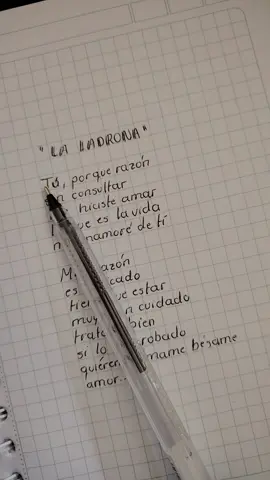 "LA LADRONA"
Tú, porque razón
consultar
hiciste amar
es la vida
namoré de tí
razón
es cado
estar
muy cuidado
trat bien
si lo robado
quiéreme mame bésame
amor..